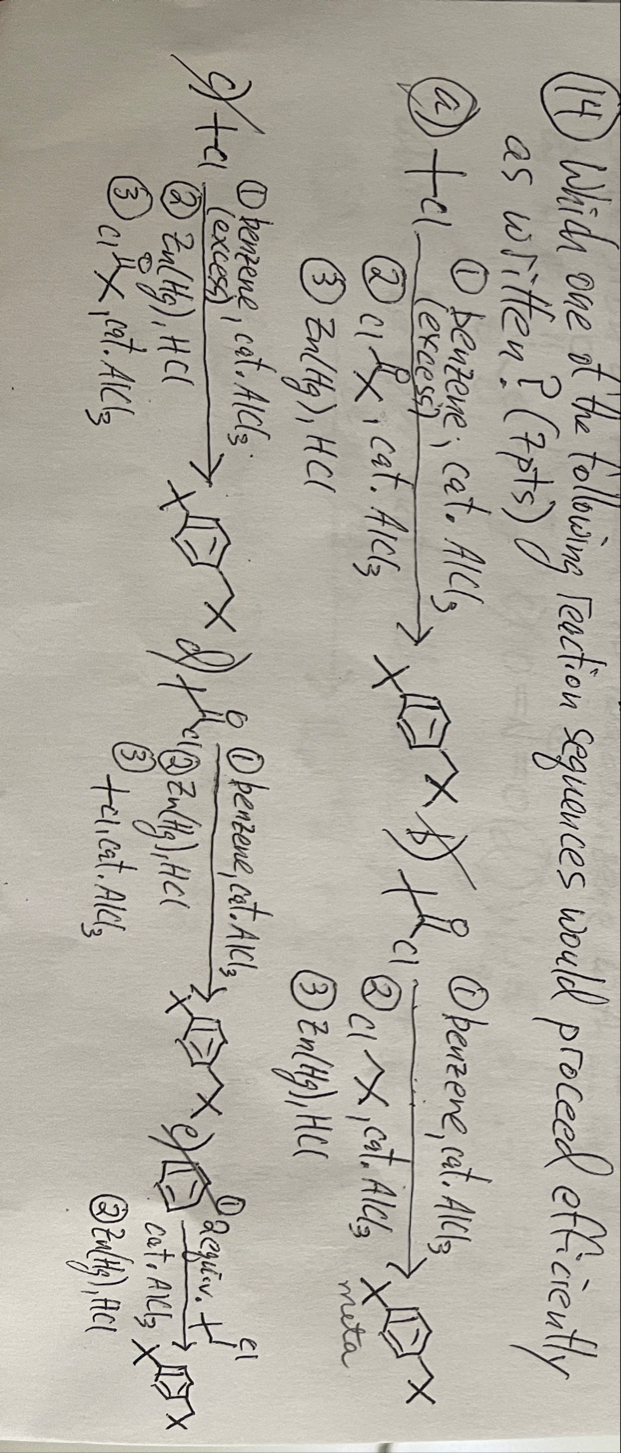 14) Which one of the following reaction sequences would proceed efficiently
as written? (7pts)
a) Cl
① benzene, cat. AlCl3
(excess)
② Cl O , cat. AlCl3
③ Zn(Hg), HCl
b) O Cl
① benzene, cat. AlCl3
② Cl , cat. AlCl3
③ Zn(Hg), HCl
meta
c) Cl
① benzene, cat. AlCl3
(excess)
② Zn(Hg), HCl
③ Cl O , cat. AlCl3
d) O Cl
① benzene, cat. AlCl3
② Zn(Hg), HCl
③ Cl, cat. AlCl3
e)
① 2equiv. Cl
cat. AlCl3
② Zn(Hg), HCl